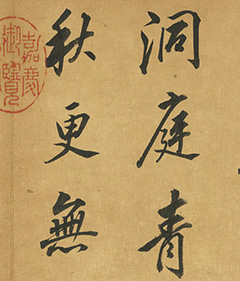 洞庭青
秋更無
嘉慶御覽